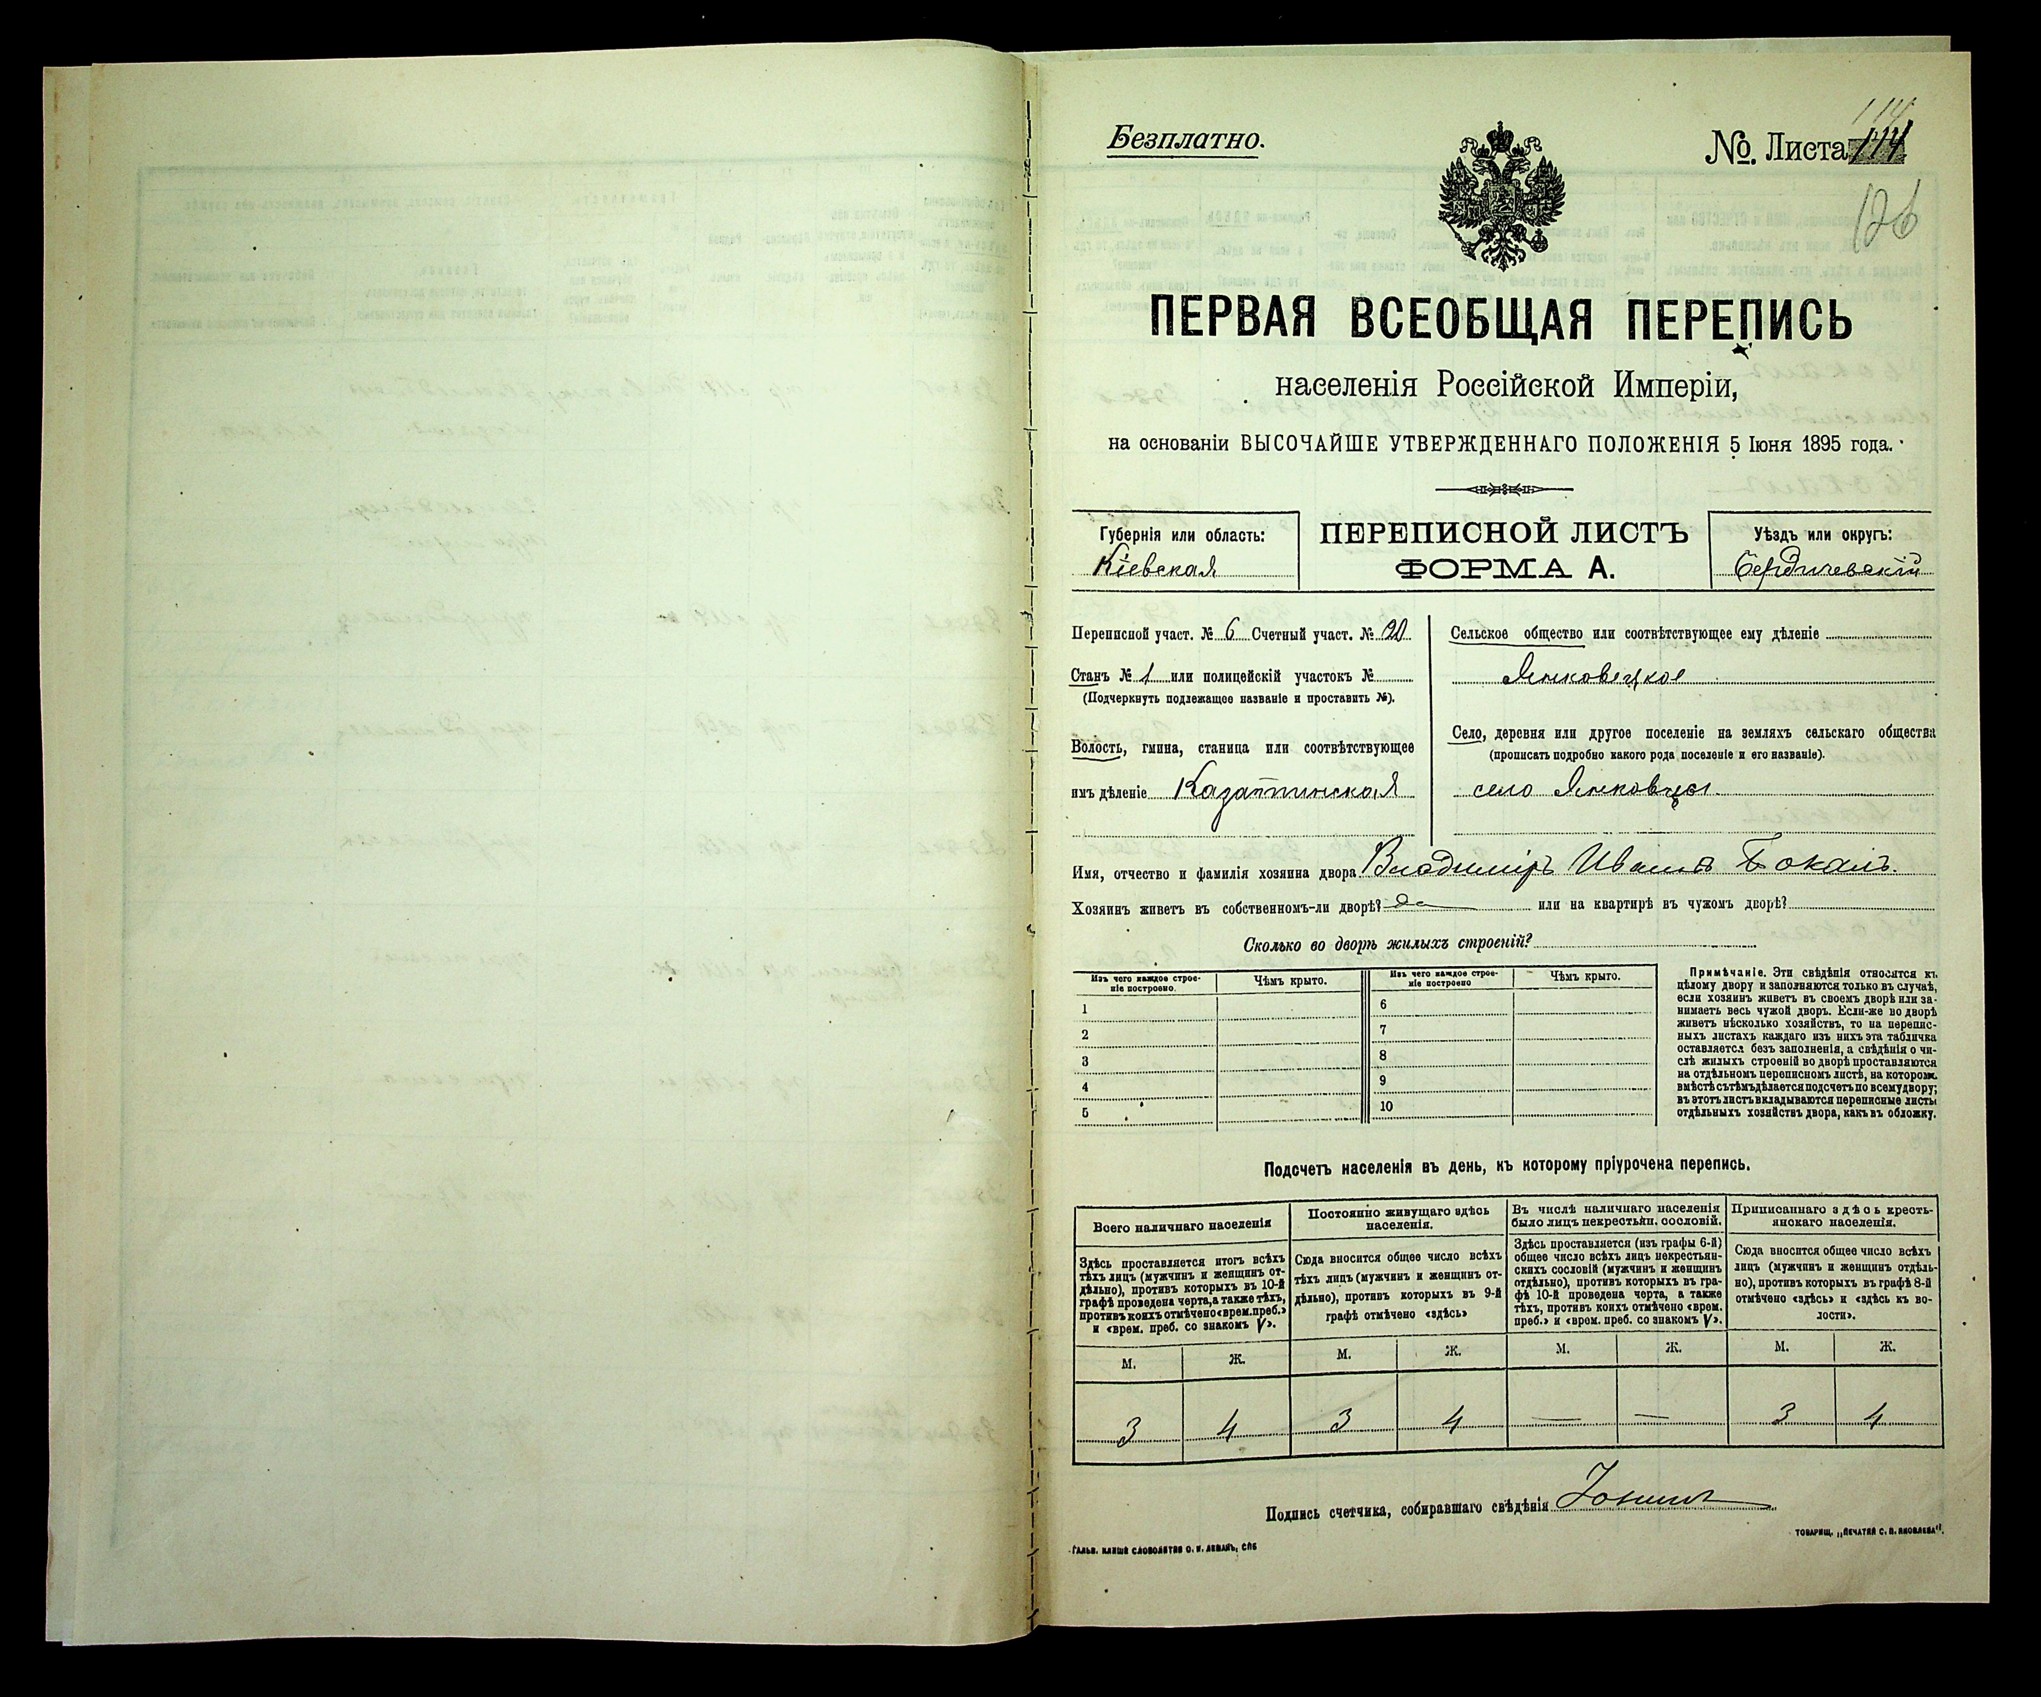 Безплатно.
114
№. Листа 114
126
ПЕРВАЯ ВСЕОБЩАЯ ПЕРЕПИСЬ
населенія Россійской Имперіи,
на основаніи ВЫСОЧАЙШЕ УТВЕРЖДЕННАГО ПОЛОЖЕНІЯ 5 Іюня 1895 года.
Губернія или область:
Кіевская
ПЕРЕПИСНОЙ ЛИСТЪ
ФОРМА А.
Уѣздъ или округъ:
Бердичевскій
Переписной участ. № 6 Счетный участ. № 20
Станъ № 1 или полицейскій участокъ №
(Подчеркнуть подлежащее названіе и проставить №).
Волость, гмина, станица или соотвѣтствующее
имъ дѣленіе Казатинская
Сельское общество или соотвѣтствующее ему дѣленіе
Янковецкое
Село, деревня или другое поселеніе на земляхъ сельскаго общества
(прописать подробно какого рода поселеніе и его названіе).
село Янковцы.
Имя, отчество и фамилія хозяина двора Владиміръ Иванов Бокалъ.
Хозяинъ живетъ въ собственномъ-ли дворѣ? да или на квартирѣ въ чужомъ дворѣ?
Сколько во дворѣ жилыхъ строеній?
Изъ чего каждое строе-
ніе построено.
Чѣмъ крыто.
Изъ чего каждое строе-
ніе построено
Чѣмъ крыто.
1
2
3
4
5
6
7
8
9
10
Примѣчаніе. Эти свѣдѣнія относятся къ
цѣлому двору и заполняются только въ случаѣ,
если хозяинъ живетъ въ своемъ дворѣ или за-
нимаетъ весь чужой дворъ. Если-же во дворѣ
живетъ нѣсколько хозяйствъ, то на перепис-
ныхъ листахъ каждаго изъ нихъ эта табличка
оставляется безъ заполненія, а свѣдѣнія о чи-
слѣ жилыхъ строеній во дворѣ проставляются
на отдѣльномъ переписномъ листѣ, на которомъ
вмѣстѣ съ тѣмъ дѣлается подсчетъ по всему двору;
въ этотъ листъ вкладываются переписные листы
отдѣльныхъ хозяйствъ двора, какъ въ обложку.
Подсчетъ населенія въ день, къ которому пріурочена перепись.
Всего наличнаго населенія
Здѣсь проставляется итогъ всѣхъ
тѣхъ лицъ (мужчинъ и женщинъ от-
дѣльно), противъ которыхъ въ 10-й
графѣ проведена черта, а также тѣхъ,
противъ коихъ отмѣчено «врем. преб.»
и «врем. преб. со знакомъ V».
Постоянно живущаго здѣсь
населенія.
Сюда вносится общее число всѣхъ
тѣхъ лицъ (мужчинъ и женщинъ от-
дѣльно), противъ которыхъ въ 9-й
графѣ отмѣчено «здѣсь»
Въ числѣ наличнаго населенія
было лицъ некрестьян. сословій.
Здѣсь проставляется (изъ графы 6-й)
общее число всѣхъ лицъ некрестьян-
скихъ сословій (мужчинъ и женщинъ
отдѣльно), противъ которыхъ въ гра-
фѣ 10-й проведена черта, а также
тѣхъ, противъ коихъ отмѣчено «врем.
преб.» и «врем. преб. со знакомъ V».
Приписаннаго здѣсь кресть-
янскаго населенія.
Сюда вносится общее число всѣхъ
лицъ (мужчинъ и женщинъ отдѣль-
но), противъ которыхъ въ графѣ 8-й
отмѣчено «здѣсь» и «здѣсь къ во-
лости».
М. Ж. М. Ж. М. Ж. М. Ж.
3 4 3 4 — — 3 4
Подпись счетчика, собиравшаго свѣдѣнія
Гальв. клише словолитни О. И. Леманъ, СПБ
ТОВАРИЩ. „ПЕЧАТНЯ С. П. ЯКОВЛЕВА".